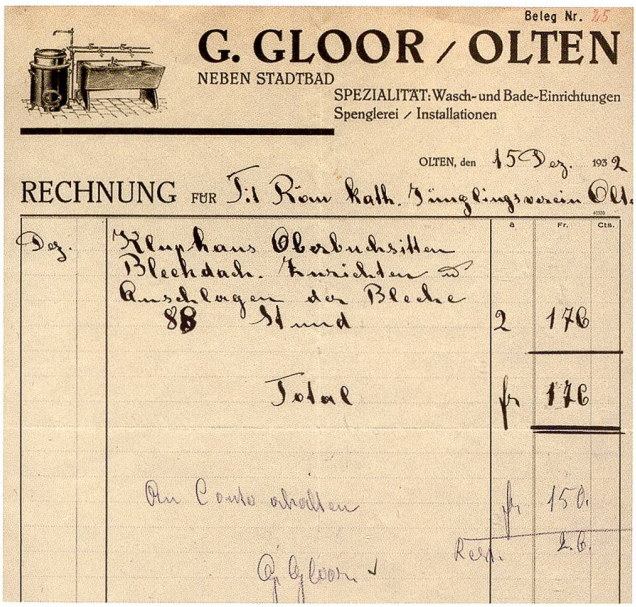 Beleg Nr. 25
G. GLOOR / OLTEN
NEBEN STADTBAD
SPEZIALITÄT: Wasch- und Bade-Einrichtungen
Spenglerei / Installationen
OLTEN, den 15 Dez. 1932
RECHNUNG FÜR Tit Röm kath. Jünglingsverein Olte
à Fr. Cts.
Dez. Klubhaus Oberbuchsitten
Blechdach. Zurichten u
Anschlagen der Bleche
88 Stund 2 176
Total fr 176
An Conto erhalten fr 150.
Rest. 26.
G. Gloor